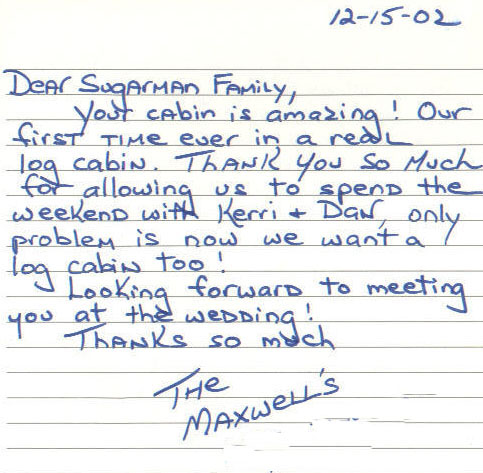 12-15-02
Dear Sugarman Family,
Your cabin is amazing! Our
first time ever in a real
log cabin. Thank you so much
for allowing us to spend the
weekend with Kerri + Dan, only
problem is now we want a
log cabin too!
Looking forward to meeting
you at the wedding!
Thanks so much
The
Maxwell's